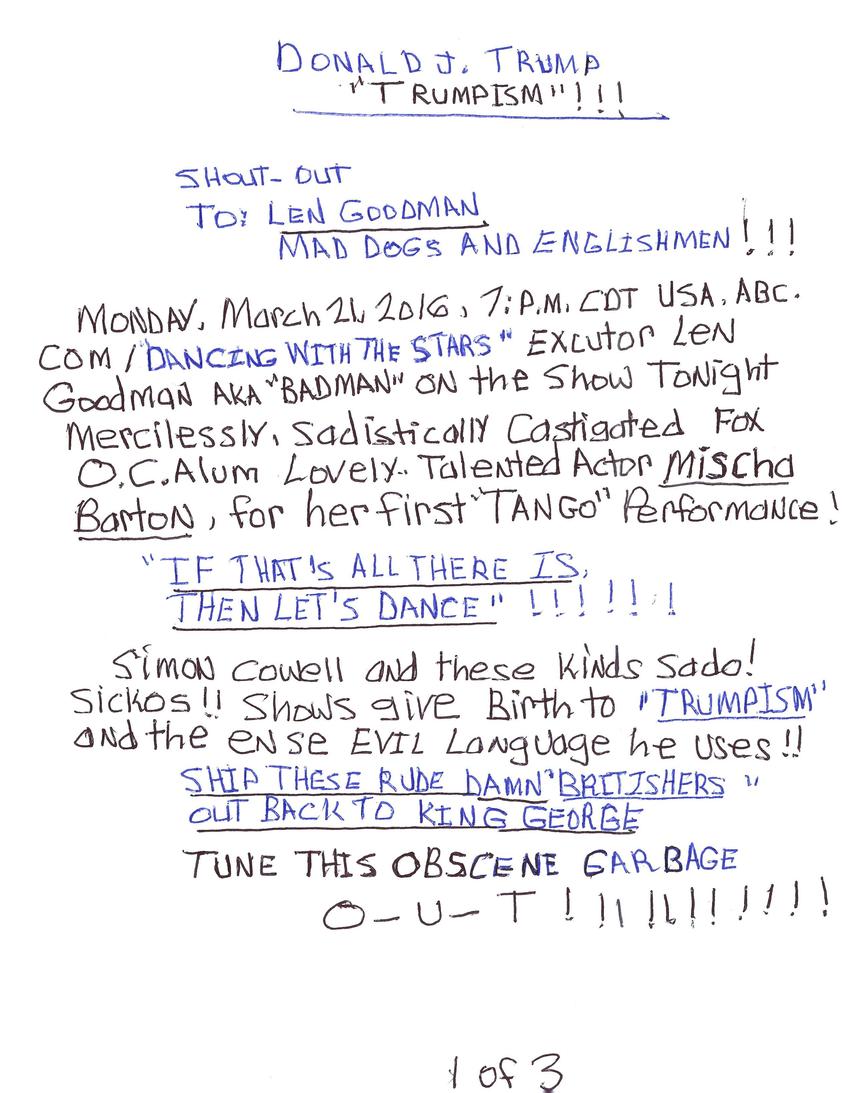 DONALD J. TRUMP
"TRUMPISM"!!!
SHOUT-OUT
TO: LEN GOODMAN
MAD DOGS AND ENGLISHMEN!!!
MONDAY, March 21, 2016, 7:P.M. CDT USA, ABC.
COM/"DANCING WITH THE STARS" EXCUTOR LEN
GoodmAN AKA "BADMAN" ON the Show TONight
Mercilessly, Sadistically Castigated FOX
O.C. Alum Lovely.. Talented Actor Mischa
Barton, for her first "TANGO" Performance!
"IF THAT'S ALL THERE IS,
THEN LET'S DANCE" !!!!!!
Simon Cowell and these Kinds Sado!
Sickos!! Shows give Birth to "TRUMPISM"
and the ENSE EVIL Language he uses!!
SHIP THESE RUDE DAMN "BRITISHERS"
OUT BACK TO KING GEORGE
TUNE THIS OBSCENE GARBAGE
O-U-T !!!!!!!!!!
1 of 3